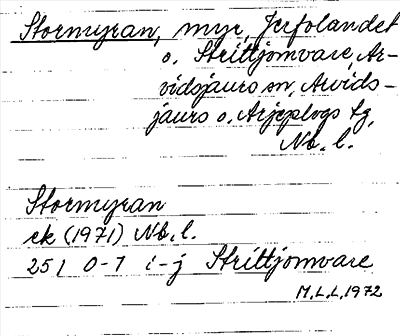 Stormyran, myr, Jrfolandet
o. Strittjomvare, Ar-
vidsjaurs sn, Arvids-
jaurs o. Arjeplogs tg,
Nb. l.
Stormyran
ek (1971) Nb. l.
25 I 0-1 i-j Strittjomvare
M.L.L. 1972